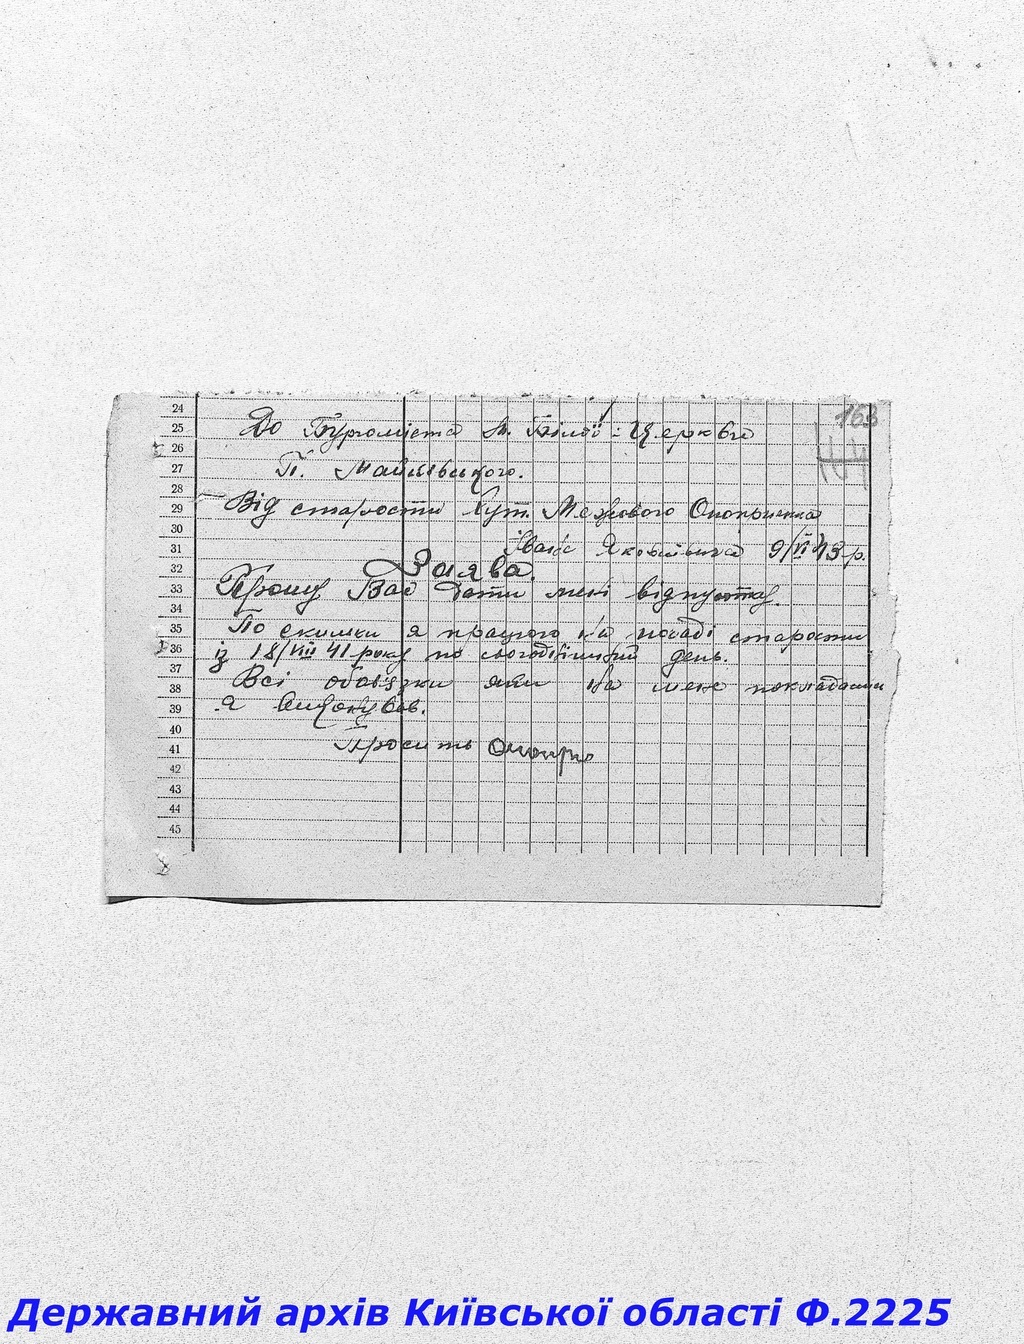 163
24
25
26
27
28
29
30
31
32
33
34
35
36
37
38
39
40
41
42
43
44
45
До Бургоміста м. Білої-Церкви
П. Маймівського.
Від старости Хут. Межового Оноприенка
Івана Яковливича 9/VI 43 р.
Заява.
Прошу Вас дати мені відпустку.
По скилки я працюю на посаді старости
із 18/VIII 41 року по сьогоднішний день.
Всі обов'язки яки на мене покладали
я виконував.
Просить
Державний архів Київської області Ф.2225